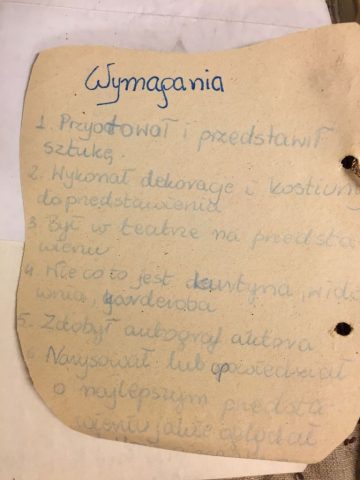 Wymagania
1. Przygotował i przedstawił
sztukę.
2. Wykonał dekoracje i kostium
do przedstawienia
3. Był w teatrze na przedsta
wieniu
4. Wie co to jest kurtyna, wido
wnia, garderoba
5. Zdobył autograf autora
6. Narysował lub opowiedział
o najlepszym przedsta
wieniu jakie oglądał